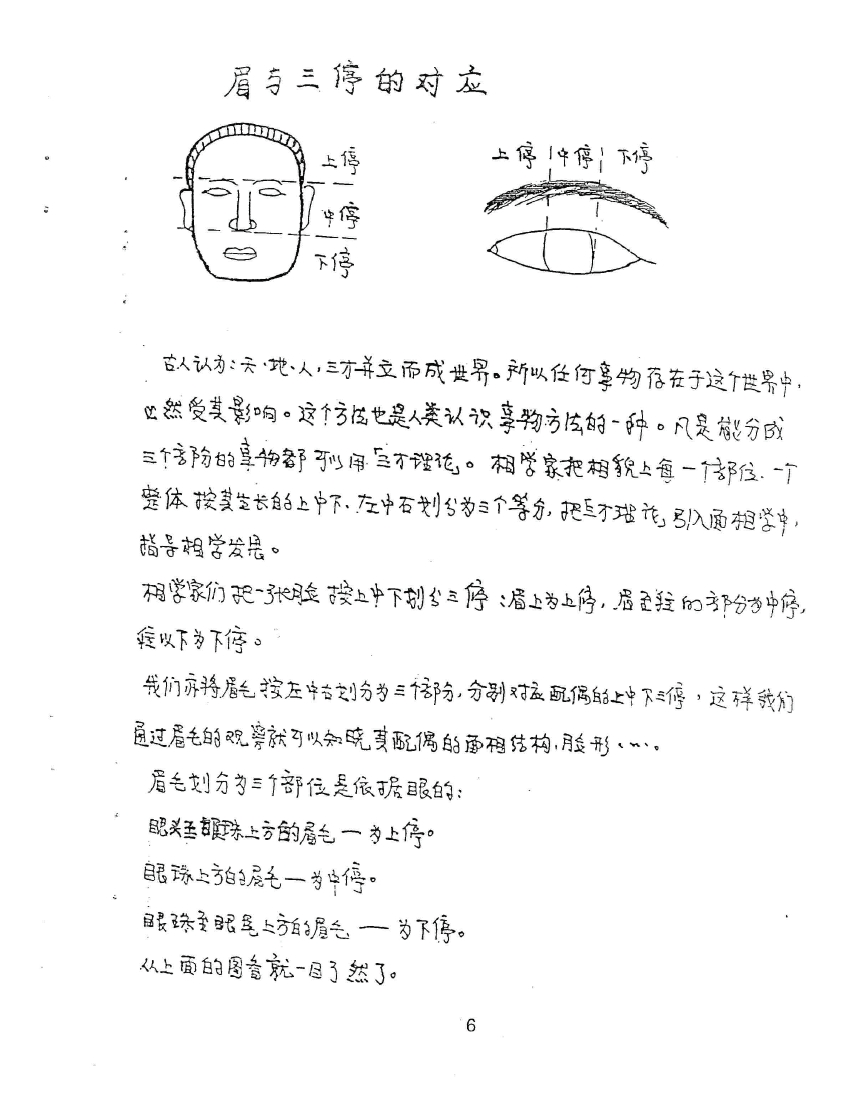 眉与三停的对应
上停
中停
下停
上停 中停 下停
古人认为:天、地、人,三才并立而成世界。所以任何事物存在于这个世界中,
必然受其影响。这个方法也是人类认识事物方法的一种。凡是能分成
三个部分的事物都可以用三才理论。相学家把相貌上每一个部位、一个
整体按其生长的上中下、左中右划分为三个等分,把三才理论引入面相学中,
指导相学发展。
相学家们把一张脸按上中下划分三停:眉上为上停,眉至准的部分为中停,
准以下为下停。
我们亦将眉毛按左中右划分为三个部分,分别对应配偶的上中下三停,这样我们
通过眉毛的观察就可以知晓其配偶的面相结构,脸形……。
眉毛划分为三个部位是依据眼的:
眼头至眼珠上方的眉毛一为上停。
眼珠上方的眉毛一为中停。
眼珠至眼尾上方的眉毛——为下停。
从上面的图看就一目了然了。
6